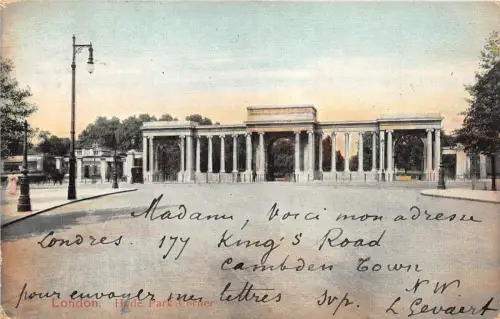 Madame, Voici mon adresse
Londres. 177 King's Road
Cambden Town
N. W.
pour envoyer mes lettres svp.
L Gevaert
London. Hyde Park Corner